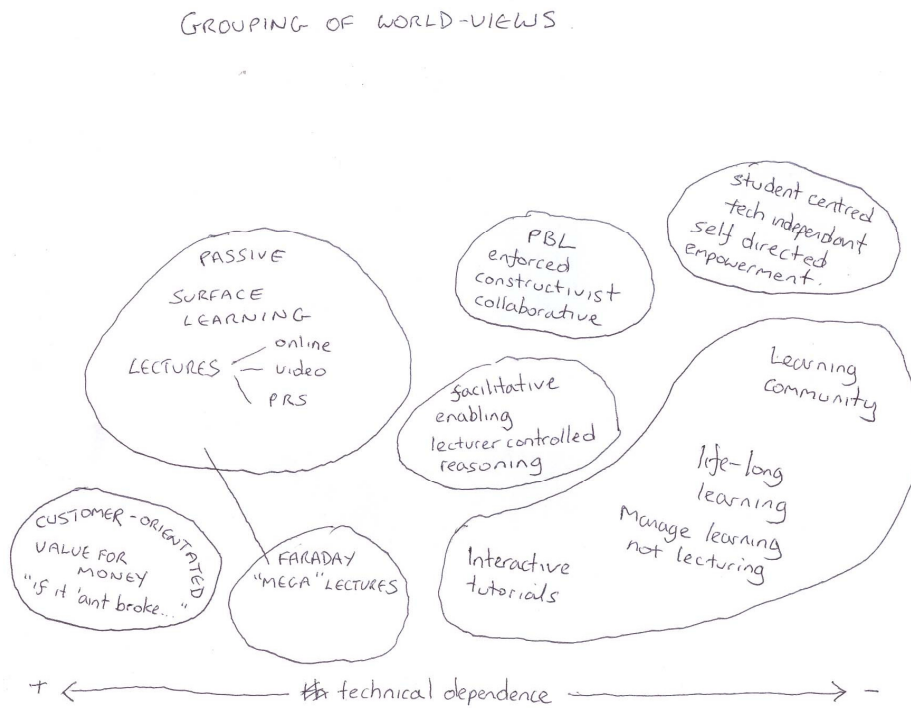 GROUPING OF WORLD-VIEWS
PASSIVE
SURFACE
LEARNING
LECTURES
online
video
PRS
PBL
enforced
constructivist
collaborative
student centred
tech independant
self directed
empowerment.
facilitative
enabling
lecturer controlled
reasoning
Learning
community
life-long
learning
Manage learning
not lecturing
Interactive
tutorials
CUSTOMER-ORIENTATED
VALUE FOR
MONEY
"if it 'aint broke..."
FARADAY
"MEGA" LECTURES
+ technical dependence -